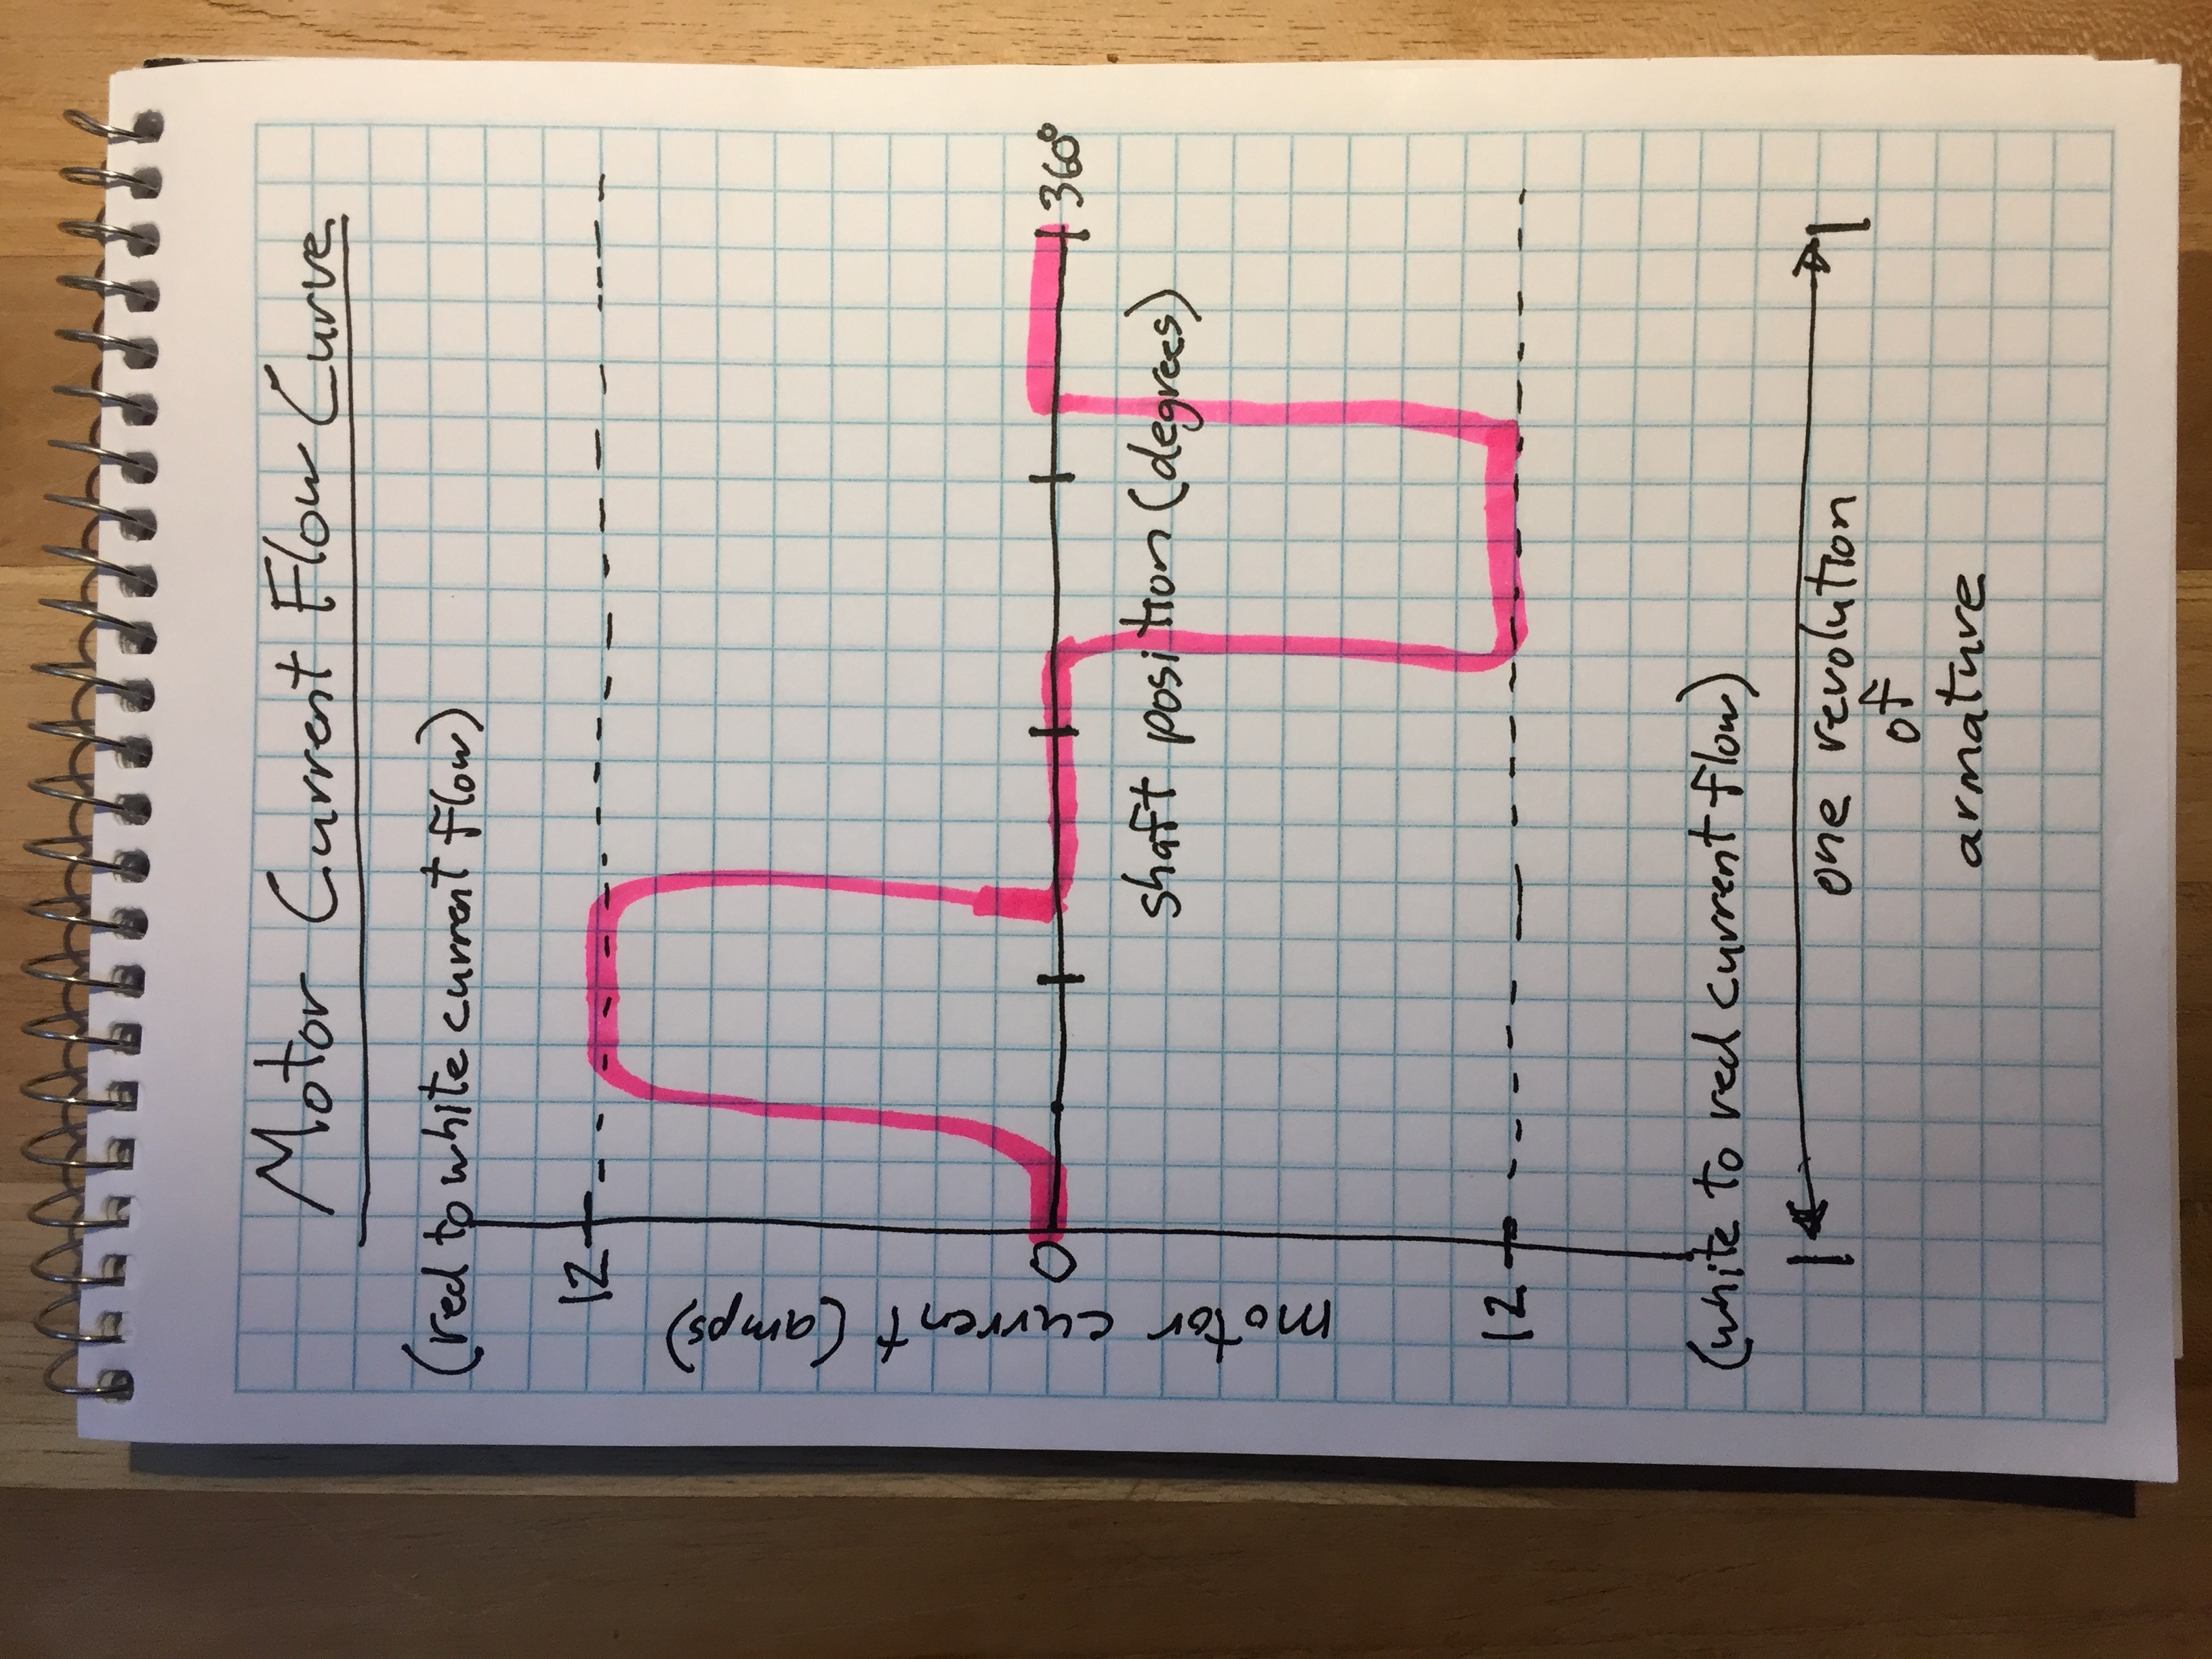 Motor Current Flow Curve
(red to white current flow)
12
motor current (amps)
0
360°
shaft position (degrees)
12
(white to red current flow)
one revolution
of
armature